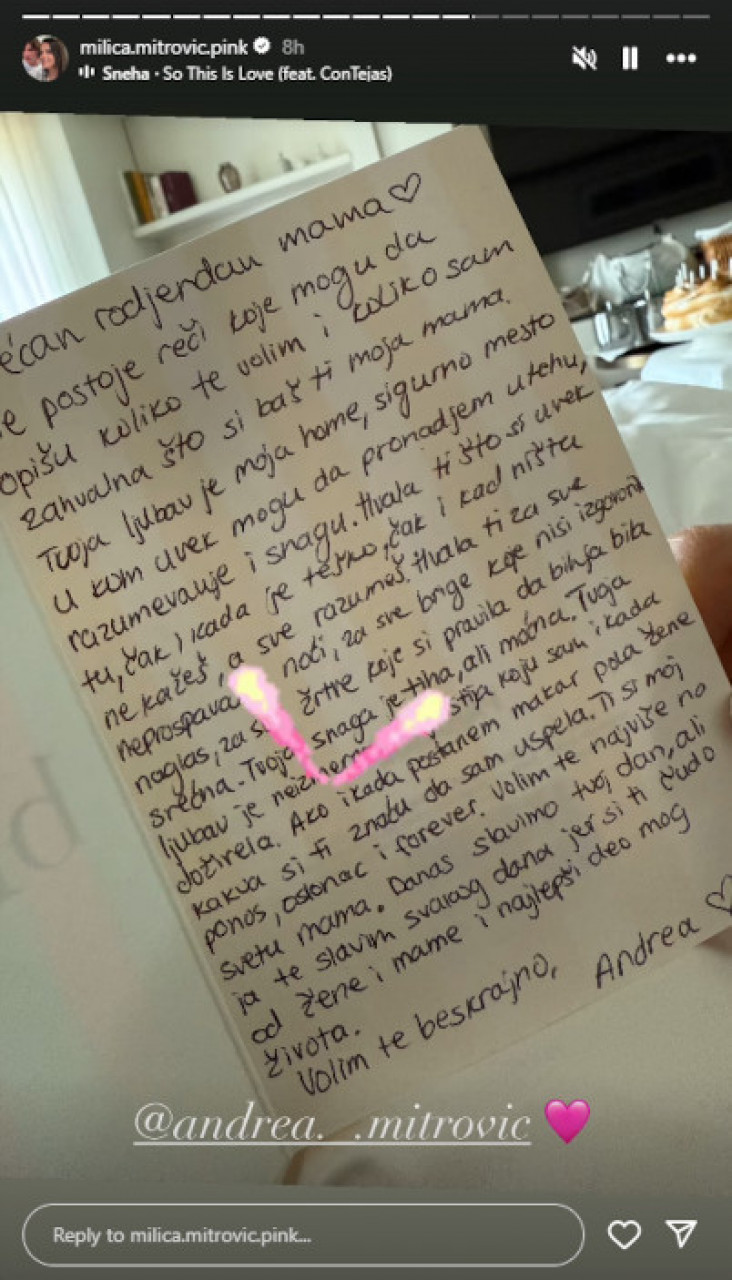 milica.mitrovic.pink 8h
Sneha · So This Is Love (feat. ConTejas)
ećan rodjendan mama♡
e postoje reči koje mogu da
opišu koliko te volim i koliko sam
zahvalna što si baš ti moja mama.
Tvoja ljubav je moja home, sigurno mesto
u kom uvek mogu da pronadjem utehu,
razumevanje i snagu. Hvala ti što si uvek
tu, čak i kada je teško, čak i kad ništa
ne kažeš, a sve razumeš. Hvala ti za sve
neprospava noći, za sve brige koje nisi izgovorila
naglas, za s žrtve koje si pravila da bih ja bila
srećna. Tvoja snaga je tiha, ali moćna. Tvoja
ljubav je koju sam ikada
doživela. Ako ikada postanem makar pola žene
kakva si ti znaću da sam uspela. Ti si moj
ponos, oslonac i forever. Volim te najviše na
svetu mama. Danas slavimo tvoj dan, ali
ja te slavim svakog dana jer si ti čudo
od žene i mame i najlepši deo mog
života.
Volim te beskrajno,
Andrea ♡
@andrea._.mitrovic
Reply to milica.mitrovic.pink...